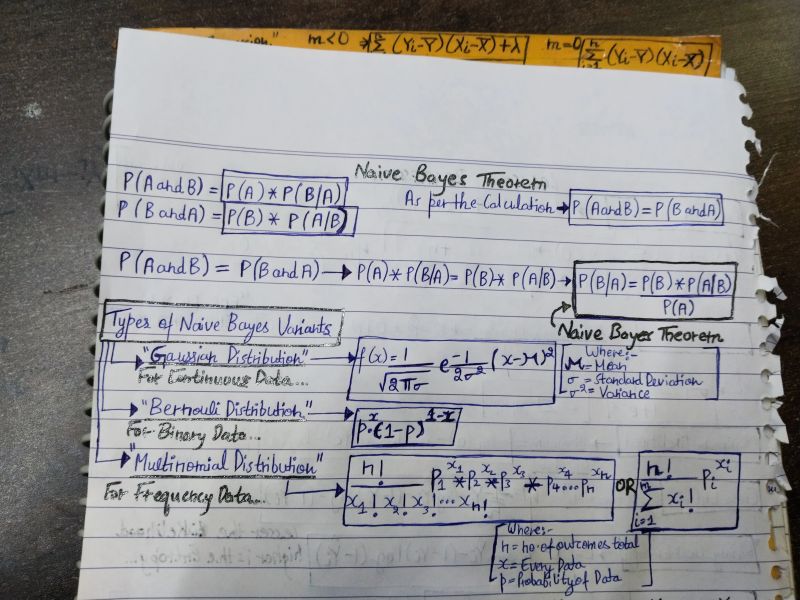 m<0 *|Σ(Yi-Ȳ)(Xi-X̄)+λ m=0|Σ(Yi-Ȳ)(Xi-X̄)
i=1
Naive Bayes Theorem
P(A and B) = P(A) * P(B/A)
P(B and A) = P(B) * P(A/B)
As per the Calculation → P(A and B) = P(B and A)
P(A and B) = P(B and A) → P(A) * P(B/A) = P(B) * P(A/B) → P(B/A) = P(B) * P(A/B)
P(A)
Naive Bayes Theorem
Types of Naive Bayes Variants
"Gaussian Distribution" → f(x) = 1/√2πσ e^-1/2σ² (x-M)²
For Continuous Data...
Where:-
M-Mean
σ = Standard Deviation
σ² = Variance
"Bernouli Distribution" → p^x·(1-p)^1-x
For Binary Data...
"Multinomial Distribution"
For Frequency Data... → n!/x1! x2! x3!...xn! P1^x1 * P2^x2 * P3^x3 * P4^x4...Pn^xn OR n!/Σ(i=1, m) xi! Pi^xi
Where:-
n = no of outcomes total
x = Every Data
p = Probability of Data